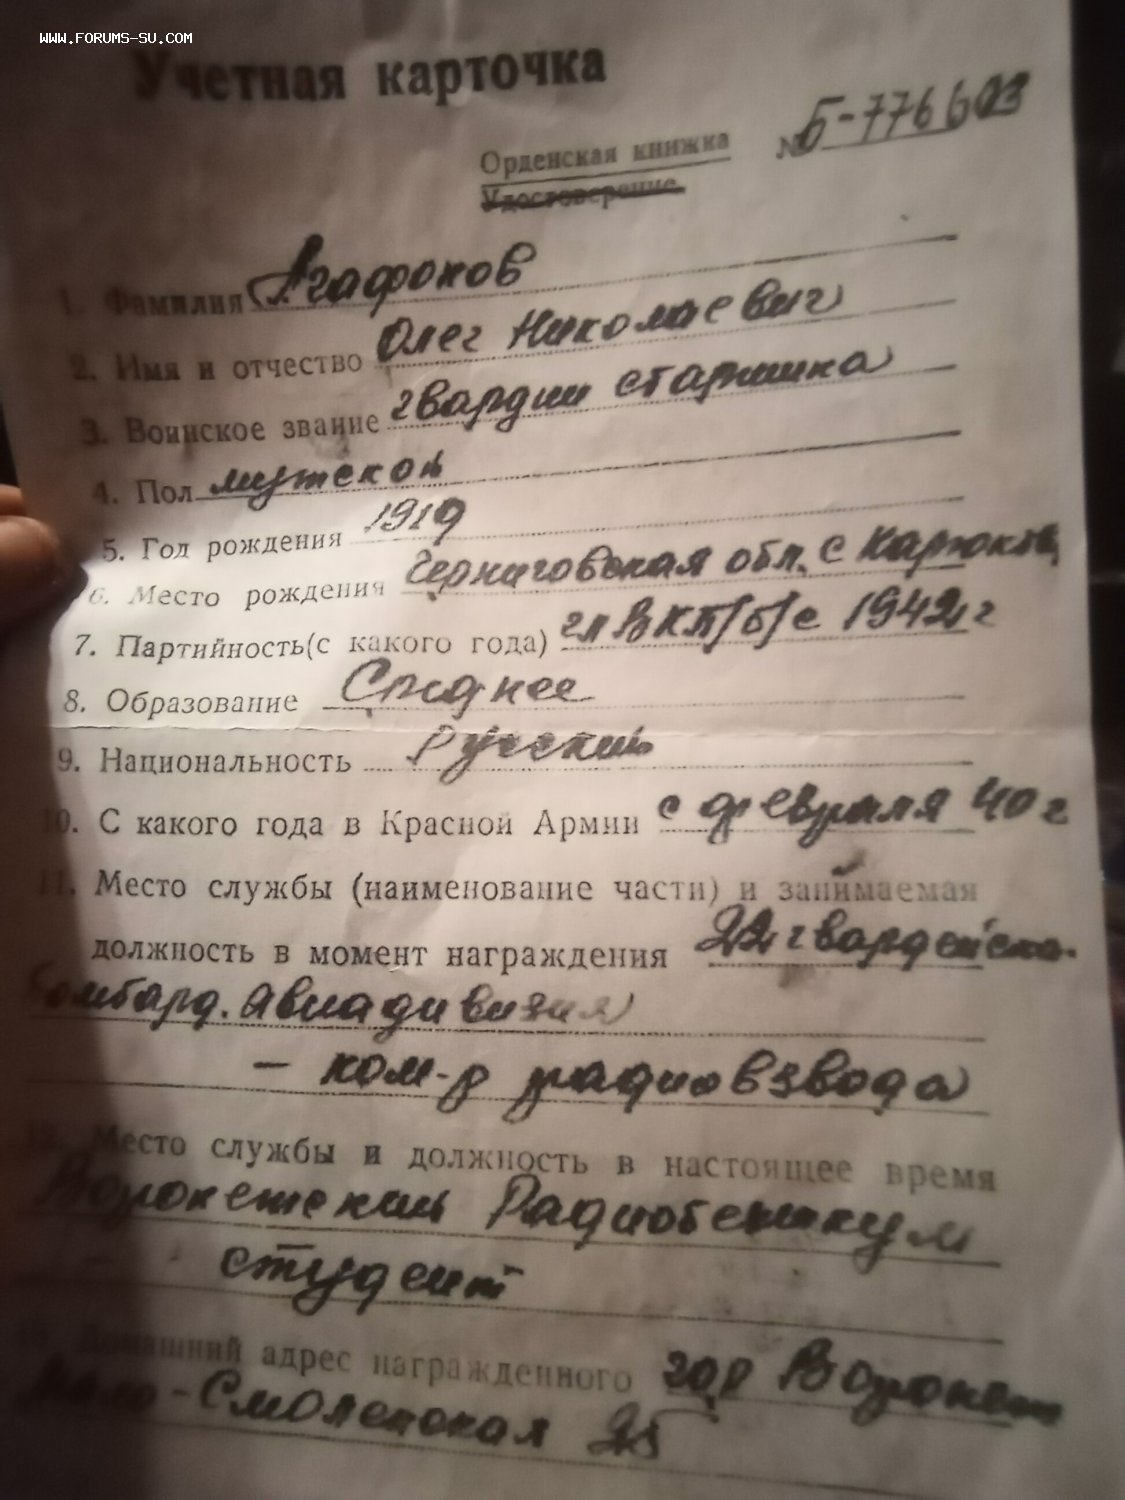 WWW.FORUMS-SU.COM
Учетная карточка
Орденская книжка № Б-776603
Удостоверение
1. Фамилия Агафонов
2. Имя и отчество Олег Николаевич
3. Воинское звание гвардии старшина
4. Пол мужской
5. Год рождения 1919
6. Место рождения Черниговская обл. с
7. Партийность(с какого года) чл ВКП/б/с 1942 г
8. Образование Среднее
9. Национальность Русский
10. С какого года в Красной Армии с февраля 40 г
11. Место службы (наименование части) и занимаемая
должность в момент награждения 22 гвардейска-
бомбард. авиадивизия
– ком-р радиовзвода
12. Место службы и должность в настоящее время
Воронежский Радиотехникум
студент
13. Домашний адрес награжденного гор Воронеж
Мало-Смоленская 25